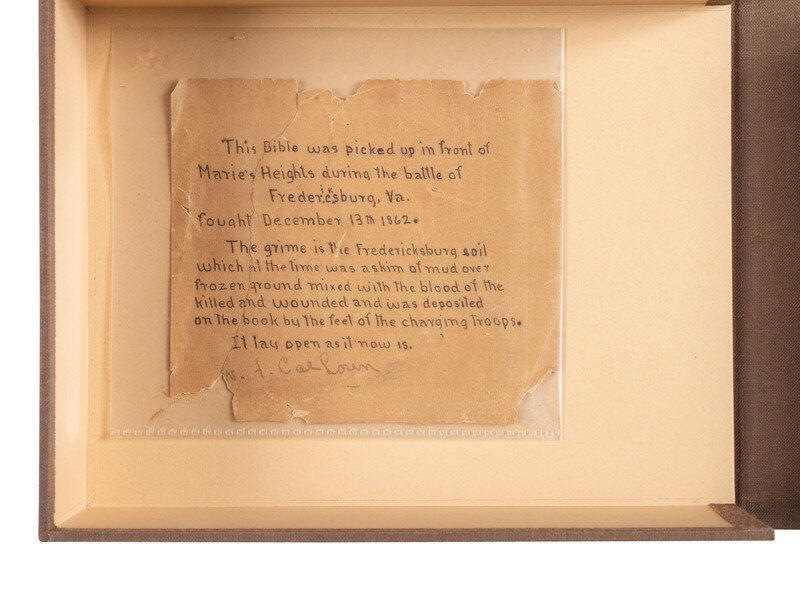 This Bible was picked up in front of
Marie's Heights during the battle of
Fredericksburg, Va.
fought December 13th 1862.
The grime is the Fredericksburg soil
which at the time was a skim of mud over
frozen ground mixed with the blood of the
killed and wounded and was deposited
on the book by the feet of the charging troops.
It lay open as it now is.
Calhoun